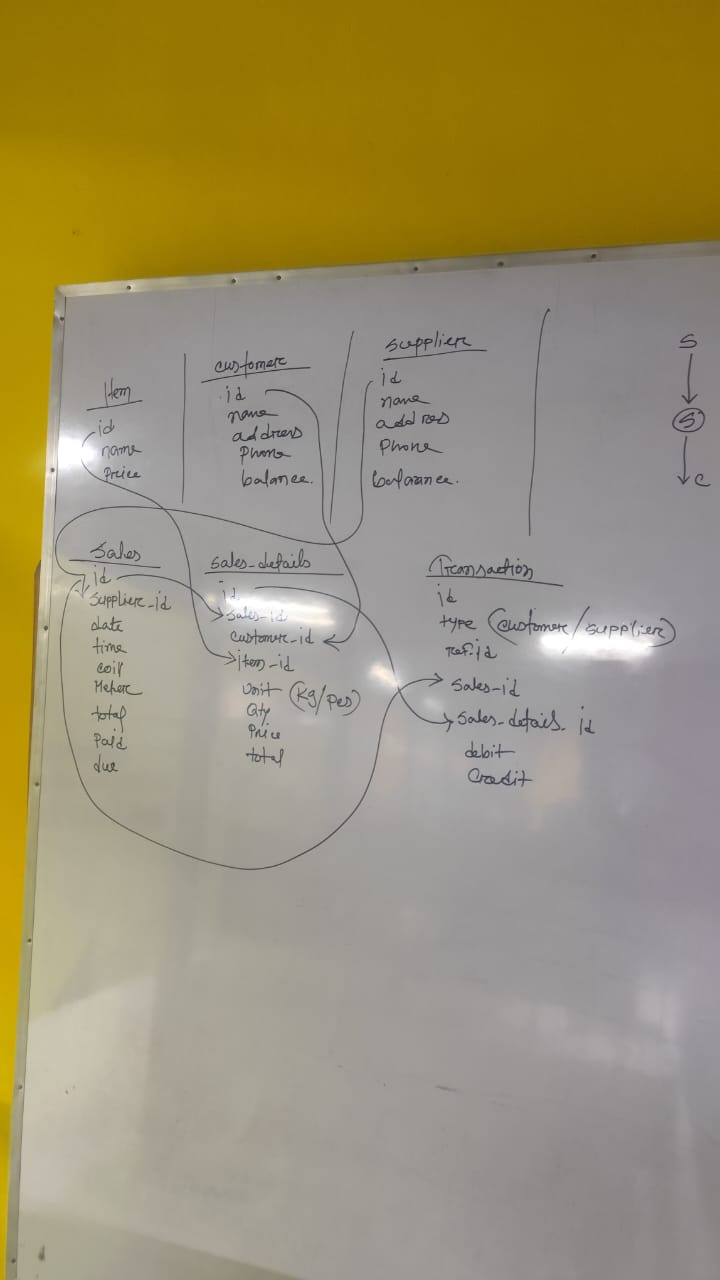 Item
id
name
Price
customer
id
name
address
Phone
balance.
supplier
id
name
addres
Phone
balarance.
S
S
C
Sales
id
supplier-id
date
time
total
Paid
due
Sales-details
id
sales-id
customer-id
item-id
Unit (Kg/Pcs)
Qty
Price
total
Transaction
id
type (customer/supplier)
ref.id
Sales-id
Sales-details-id
debit
Credit